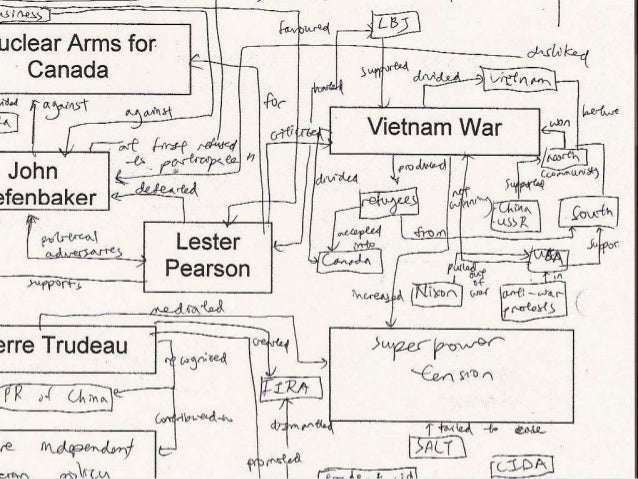 usiness
favoured
LBJ
disliked
uclear Arms for
Canada
supported
divided
Vietnam
for
against
against
criticized
Vietnam War
won
North
communists
at first refused
to participate in
John
efenbaker
defeated
divided
produced
refugees
not
winning
supported
China
USSR
South
accepted
into
from
Canada
political
adversaries
Lester
Pearson
supports
USA
suppor
pulled
out
of
war
in
Nixon
anti-war
protests
increased
mediated
erre Trudeau
recognized
created
superpower
tension
PR of China
FIRA
contributed to
dismantled
failed to ease
SALT
e independent
policy
promoted
CIDA